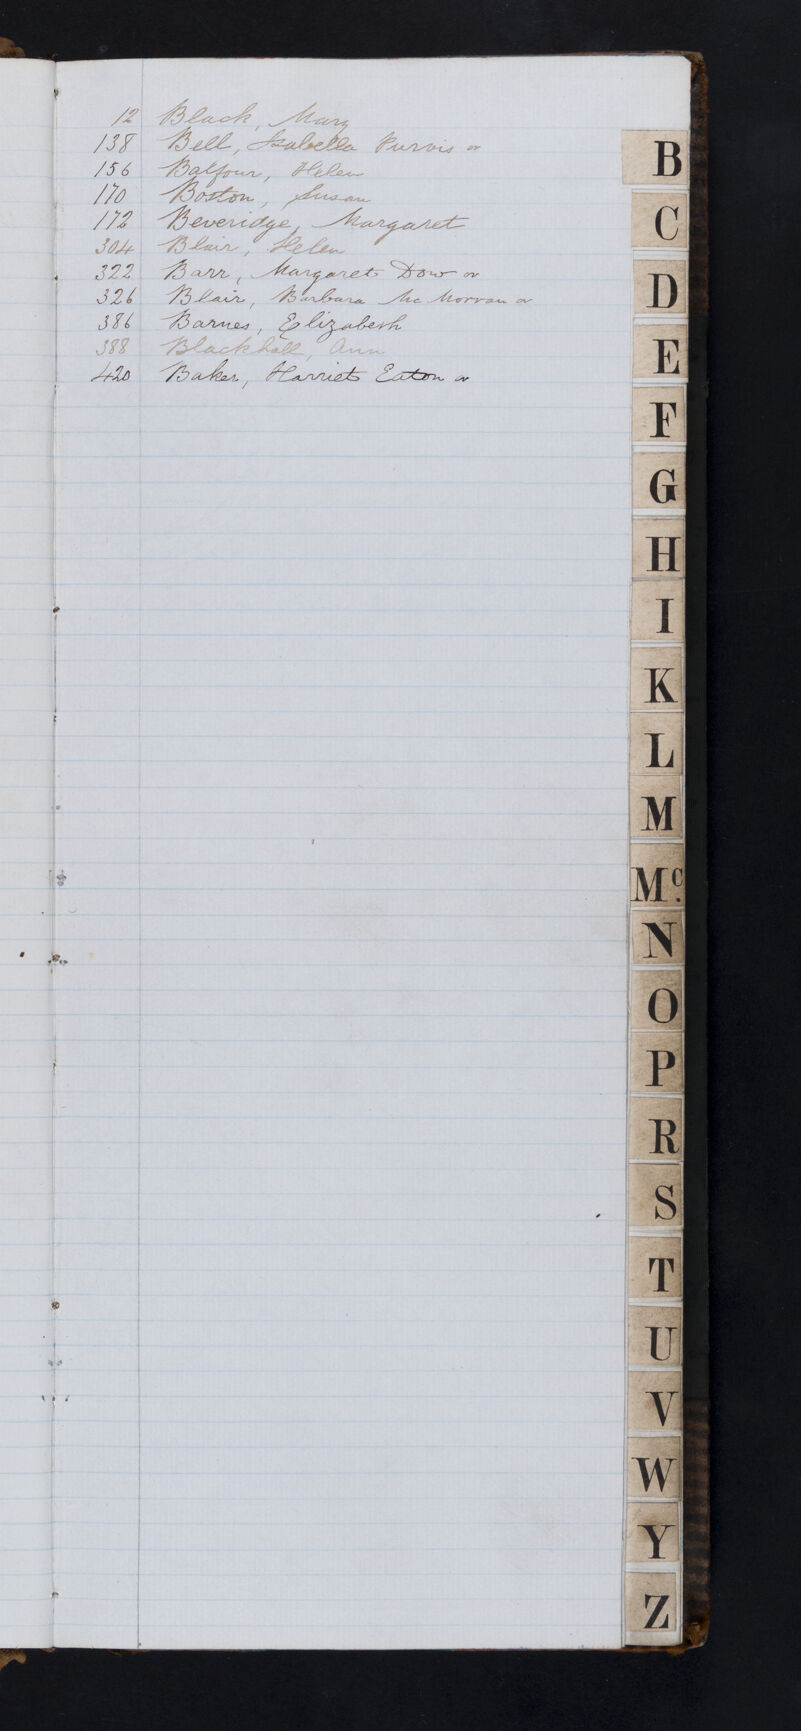 12 Black, Mary
138 Bell, Isabella Purvis or
156 Balfour, Helen
170 Boston, Susan
172 Beveridge, Margaret
304 Blair, Helen
322 Barr, Margaret Dow or
326 Blair, Barbara Mc Morran or
386 Barnes, Elizabeth
388 Blackhall, Ann
420 Baker, Harriet Eaton or
B
C
D
E
F
G
H
I
K
L
M
Mc.
N
O
P
R
S
T
U
V
W
Y
Z